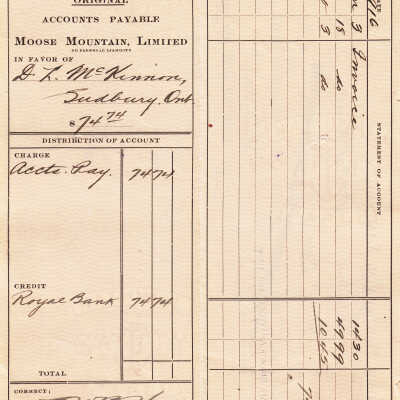 ORIGINAL
ACCOUNTS PAYABLE
MOOSE MOUNTAIN, LIMITED
NO PERSONAL LIABILITY
IN FAVOR OF
D. L. McKinnon,
Sudbury, Ont
$74 74
DISTRIBUTION OF ACCOUNT
CHARGE
Accts. Pay. 74 74
CREDIT
Royal Bank 74 74
TOTAL
CORRECT:
STATEMENT OF ACCOUNT
3 Invoice 14 30
18 do 49 99
3 do 10 45